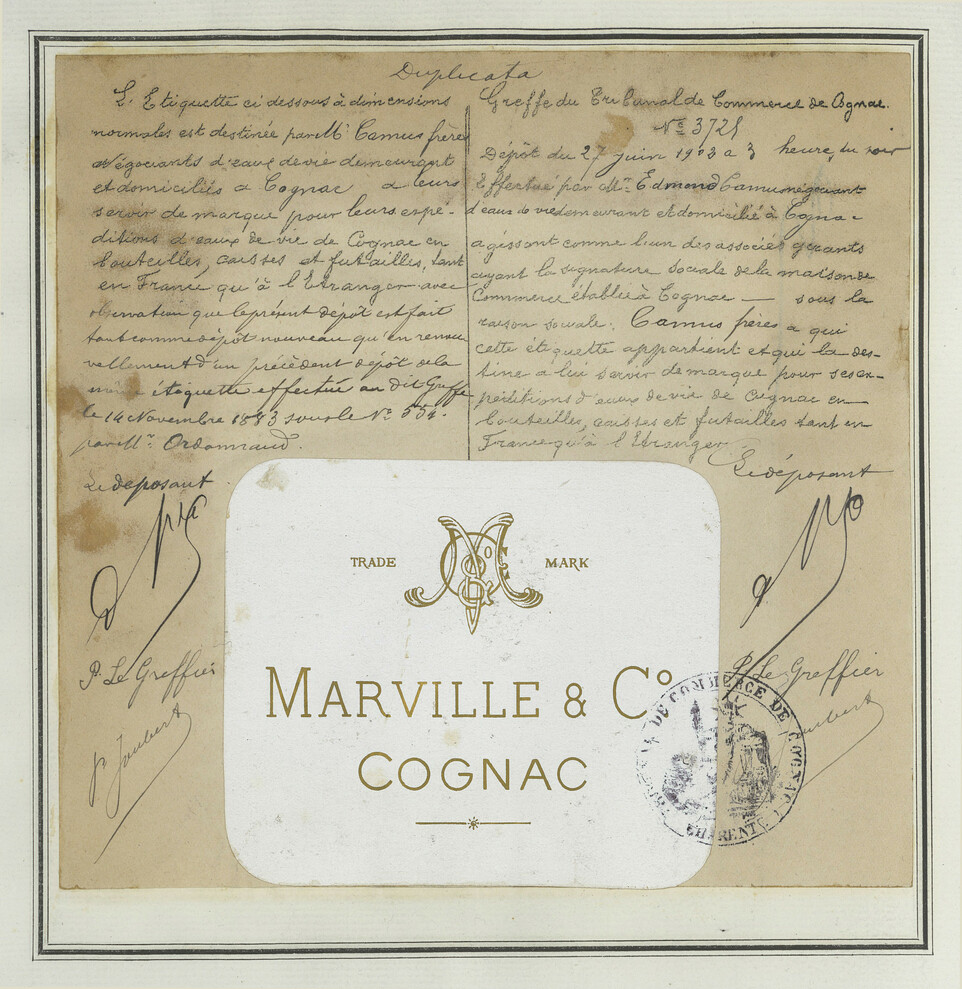 Duplicata
L'Etiquette ci dessous à dimensions
normales est destinée par Mr Camus frères
négociants d'eaux de vie demeurant
et domiciliés a Cognac a leurs
servir de marque pour leurs expé-
ditions d'eaux de vie de Cognac en
bouteilles, caisses et futailles, tant
en France qu'à l'Etranger avec
observation que le présent dépôt est fait
tant comme dépôt nouveau qu'en renou
vellement d'un précédent dépôt de la
même étiquette effectué au dit Greffe
le 14 Novembre 1883 sous le No 554.
par Mr. Ordonnaud.
Le déposant
P. Le Greffier
P. Joubert
Greffe du Tribunal de Commerce de Cognac.
No 3725
Dépôt du 27 juin 1903 a 3 heures du soir
Effectué par Mr. Edmond Camus négociant
d'eaux de vie demeurant et domicilié à Cognac
agissant comme l'un des associés gérants
ayant la signature sociale de la maison de
Commerce établie à Cognac — sous la
raison sociale: Camus frères a qui
cette étiquette appartient et qui la des-
tine a lui servir de marque pour ses ex-
péditions d'eaux de vie de Cognac en
bouteilles, caisses et futailles tant en
France qu'à l'Etranger
Le déposant
P. Le Greffier
Joubert
TRADE MARK
MARVILLE & Co
COGNAC
DE COMMERCE DE COGNAC
CHARENTE